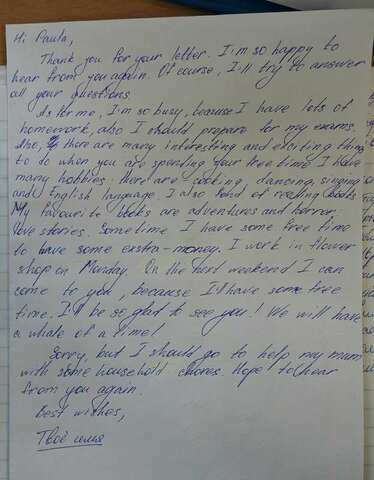 Hi Paula,
Thank you for your letter. I'm so happy to
hear from you again. Of course, I'll try to answer
all your questions
As for me, I'm so busy, because I have lots of
homework, also I should prepare for my exams.
Also, there are many interesting and exciting thing
to do when you are spending your free time I have
many hobbies: there are cooking, dancing, singing
and English language. I also fond of reading books
My favourite books are adventures and horror,
love stories. Some time I have some free time
to have some exstra-money. I work in flower
shop on Monday. On the next weekend I can
come to you, because I'll have some free
time. I'll be so glad to see you! We will have
a whale of a time!
Sorry, but I should go to help my mum
with some household chores. Hope to hear
from you again.
Best wishes,
Твоё имя